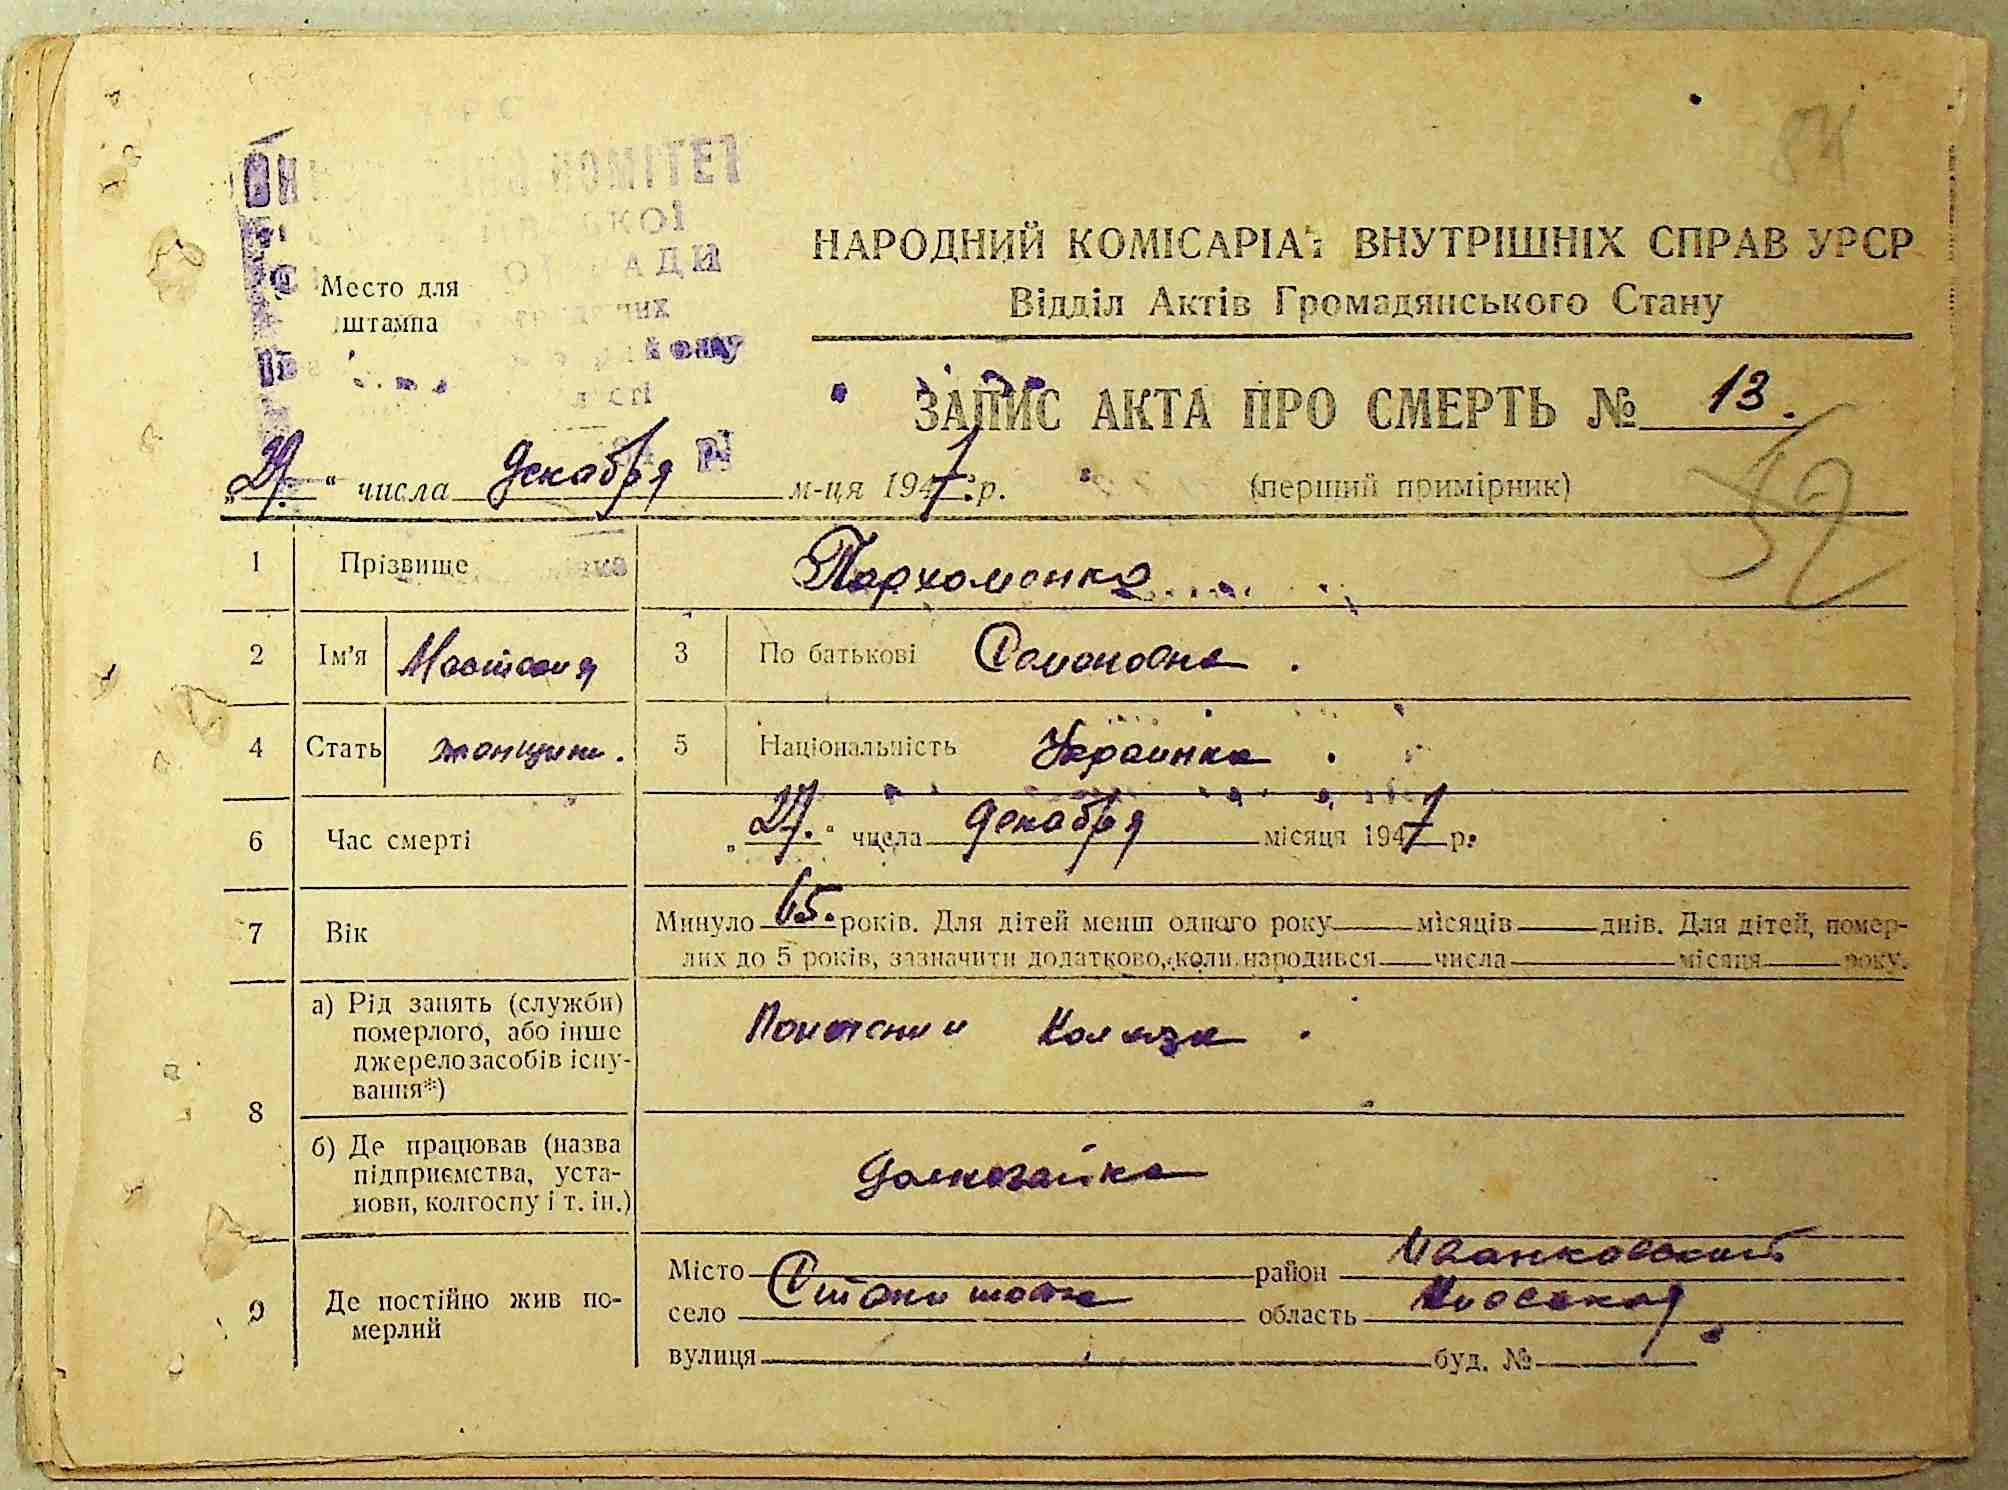 84
КОМІТЕТ
НАРОДНИЙ КОМІСАРІАТ ВНУТРІШНІХ СПРАВ УРСР
Место для
штампа
Відділ Актів Громадянського Стану
ЗАПИС АКТА ПРО СМЕРТЬ № 13.
„27.“ числа декабря м-ця 1947 р. (перший примірник)
52
1 Прізвище Пархоменко
2 Ім'я 3 По батькові Семеновна.
4 Стать женщина. 5 Національність Украинка.
6 Час смерті „27.“ числа декабря місяця 1947 р.
7 Вік Минуло 65. років. Для дітей менш одного року місяців днів. Для дітей, помер-
лих до 5 років, зазначити додатково, коли народився числа місяця року.
8 а) Рід занять (служби)
померлого, або інше
джерело засобів існу-
вання*)
б) Де працював (назва
підприємства, уста-
нови, колгоспу і т. ін.)
домохозяйка
9 Де постійно жив по-
мерлий
Місто район Иванковский
село область Киевская
вулиця буд. №